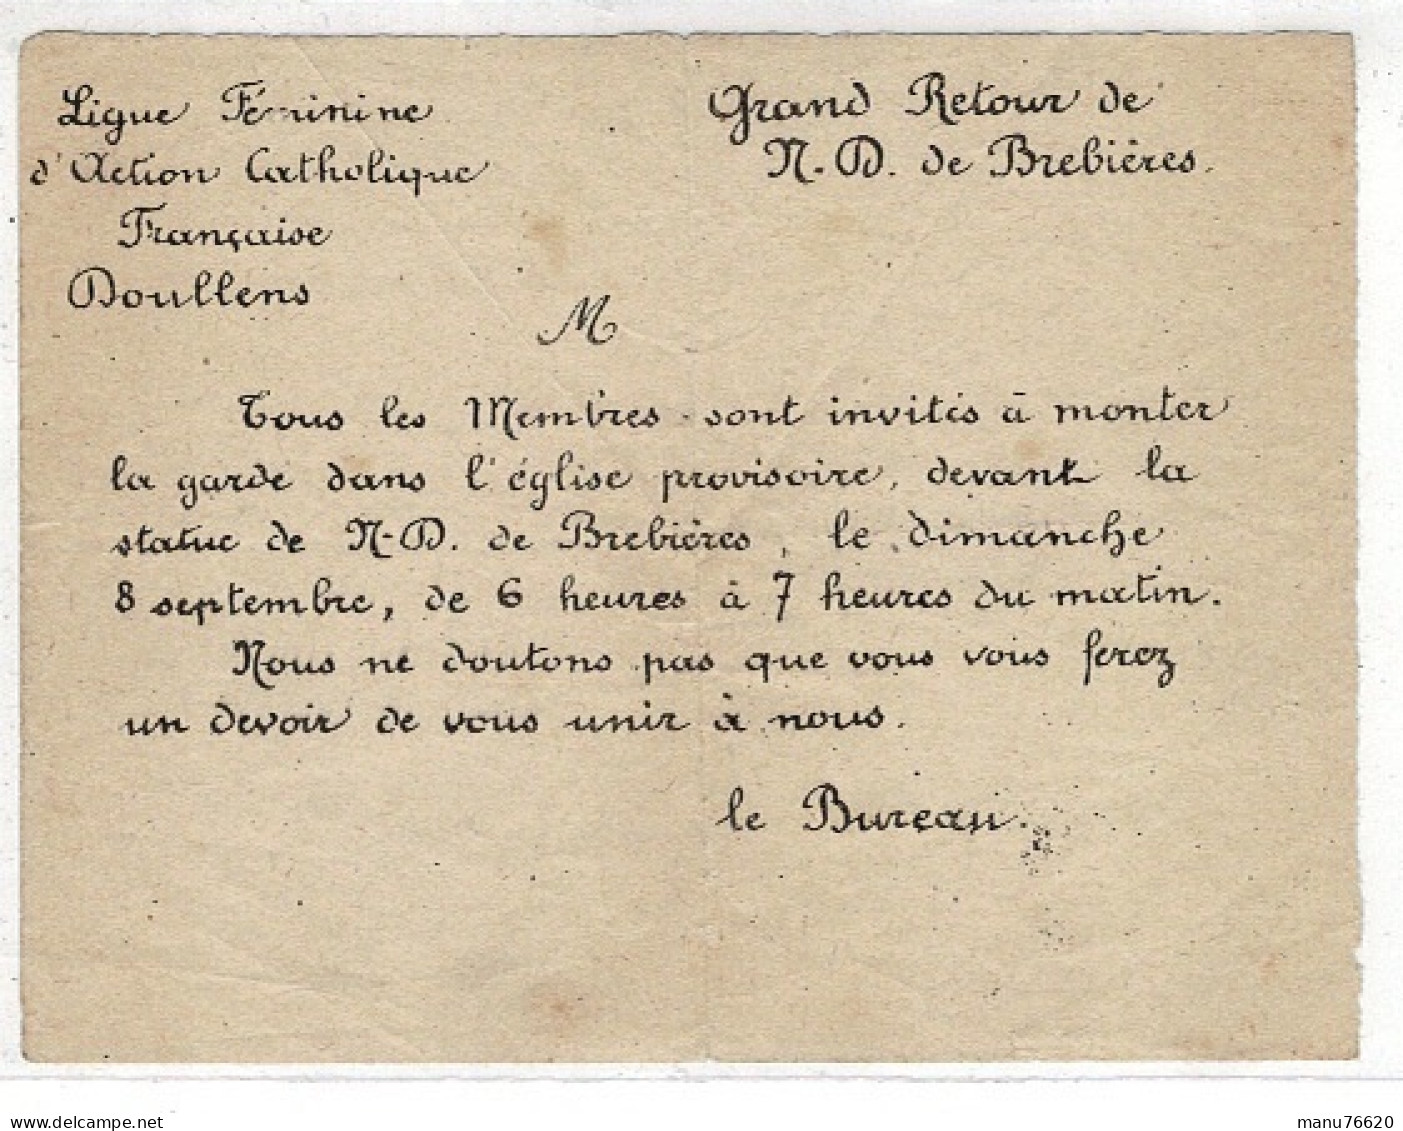 Ligue Féminine
d'Action Catholique
Française
Doullens
Grand Retour de
N.-D. de Brebières.
M
Tous les Membres sont invités à monter
la garde dans l'église provisoire, devant la
statue de N-D. de Brebières, le dimanche
8 septembre, de 6 heures à 7 heures du matin.
Nous ne doutons pas que vous vous ferez
un devoir de vous unir à nous.
le Bureau.
delcampe.net
manu76620